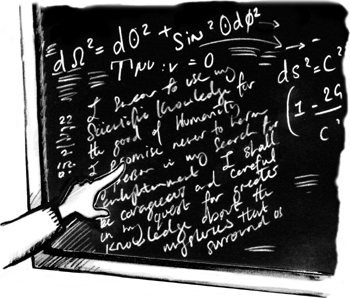 dΩ² = dθ² + Sin²θdϕ²
Tμν;ν = 0
ds² = C²
(1 - 2G
C²
I swear to use my
Scientific Knowledge for
the good of Humanity
I promise never to harm
Person in my Search for
enlightenment I shall
be courageous and careful
in my quest for greater
Knowledge about the
mysteries that
surround us